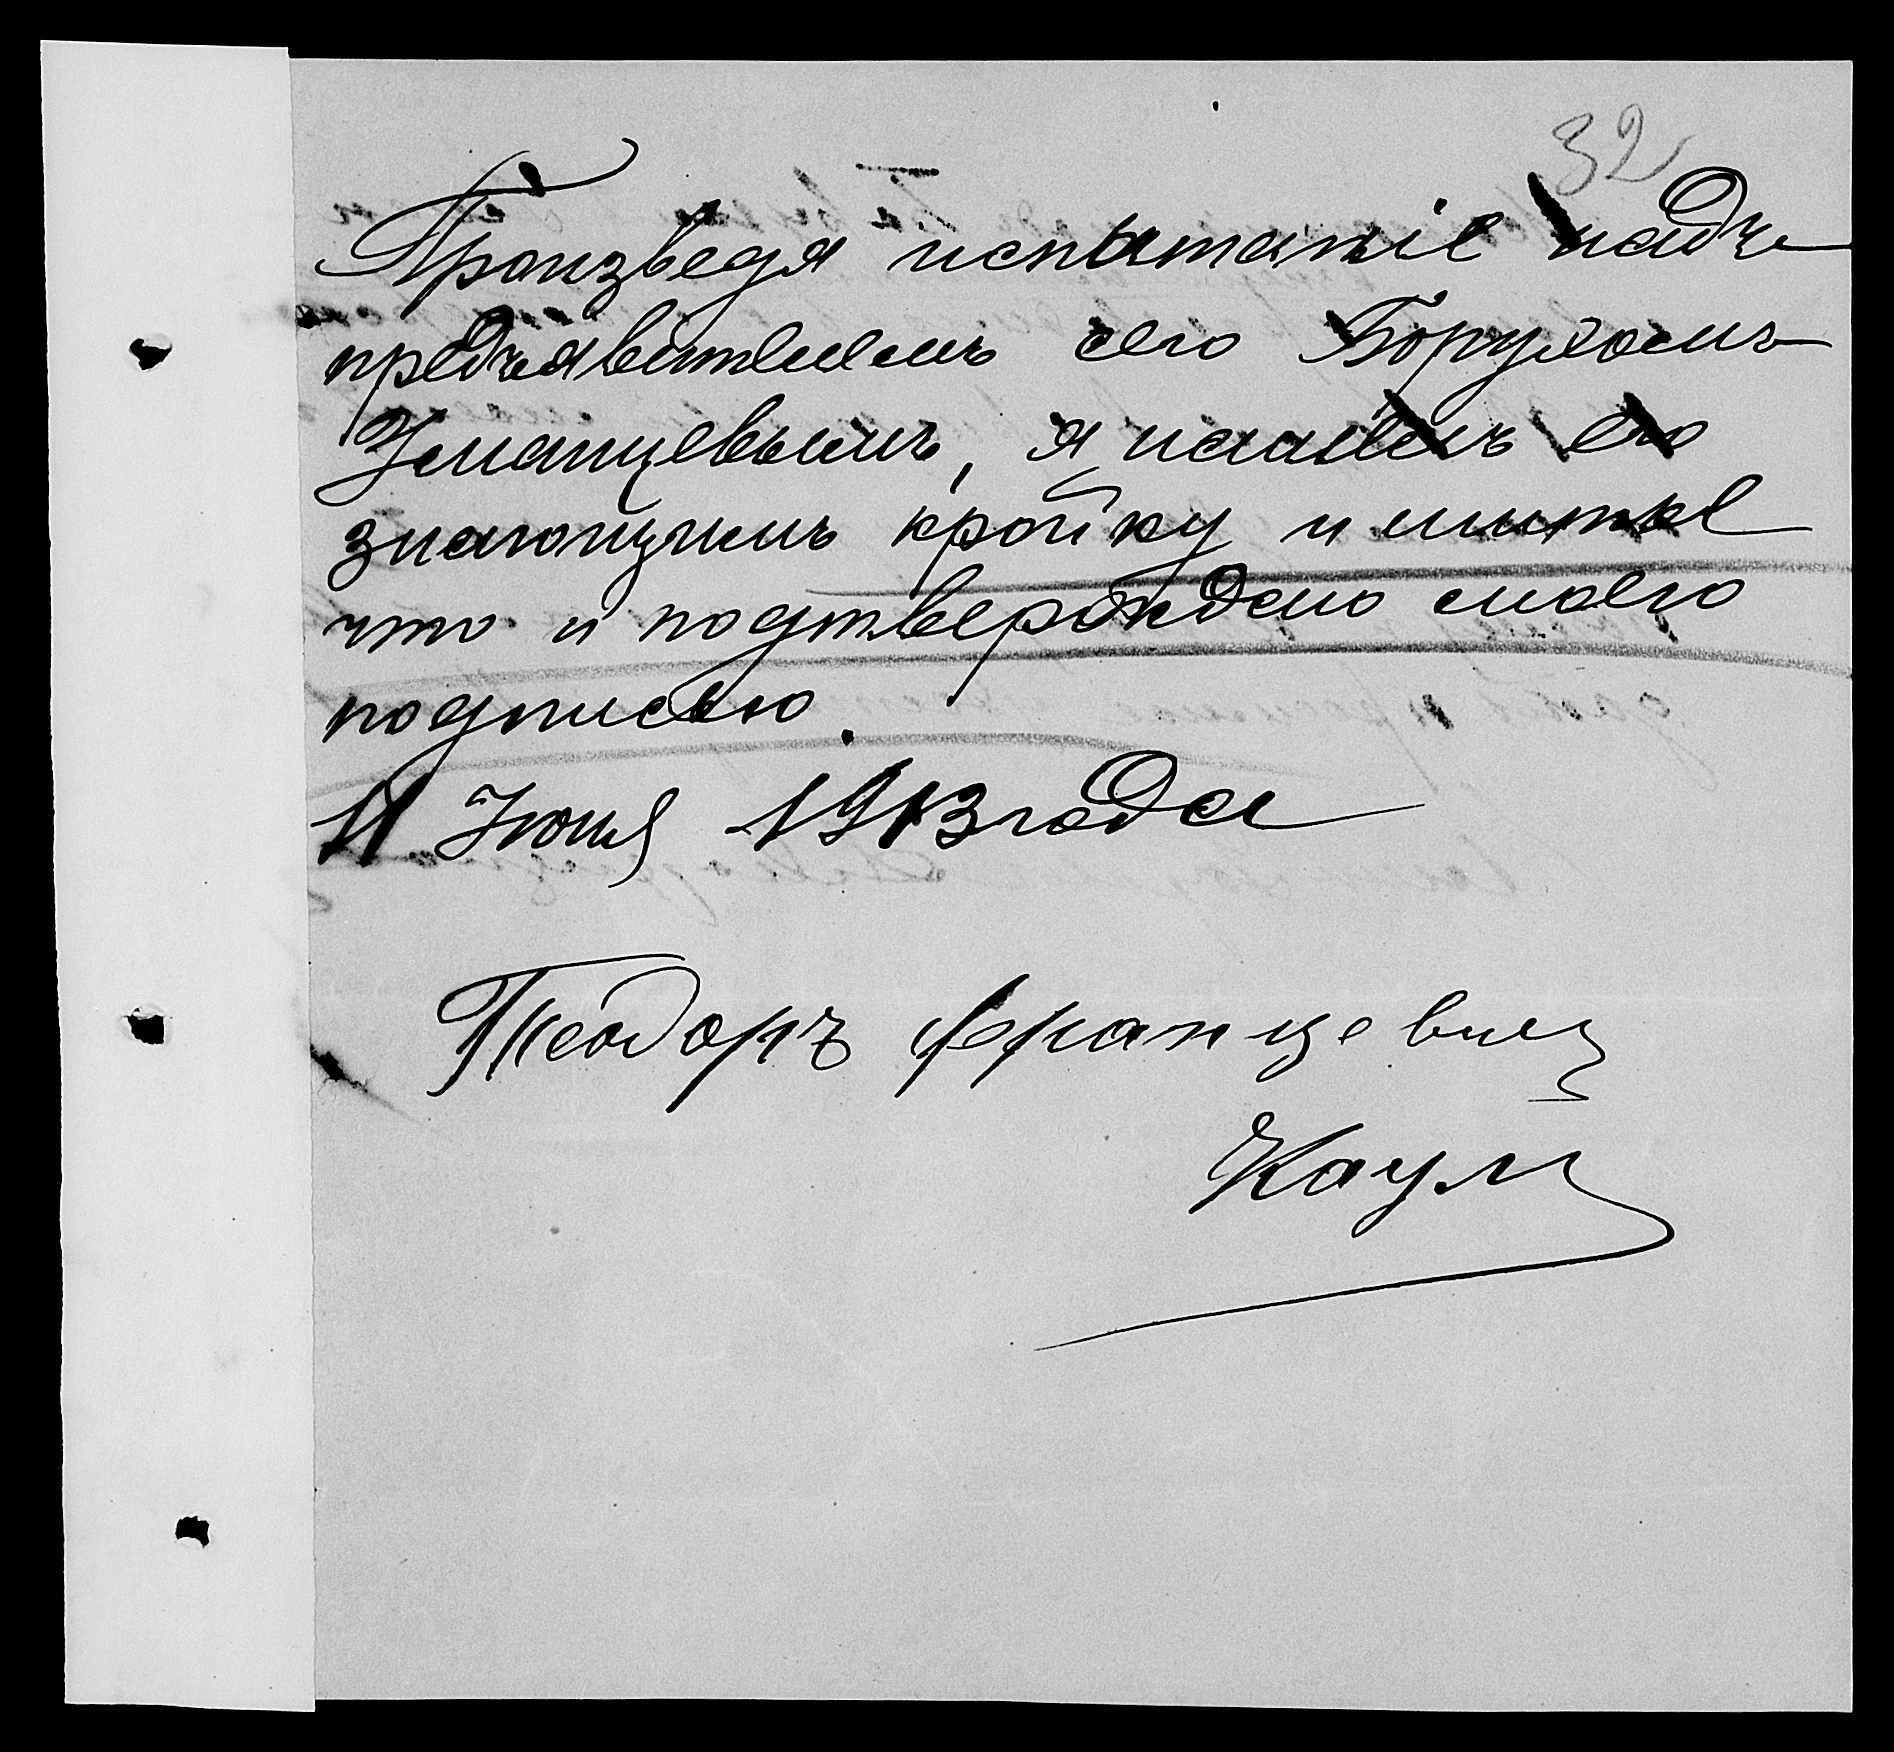 32
Произведя испытаніе надъ
предъявителемъ сего Борухомъ
Уманцевымъ, я нашелъ его
знающимъ кройку и шитье
что и подтверждаю моею
подписью.
11 Июня 1913 года
Теодоръ Францевич
Каум